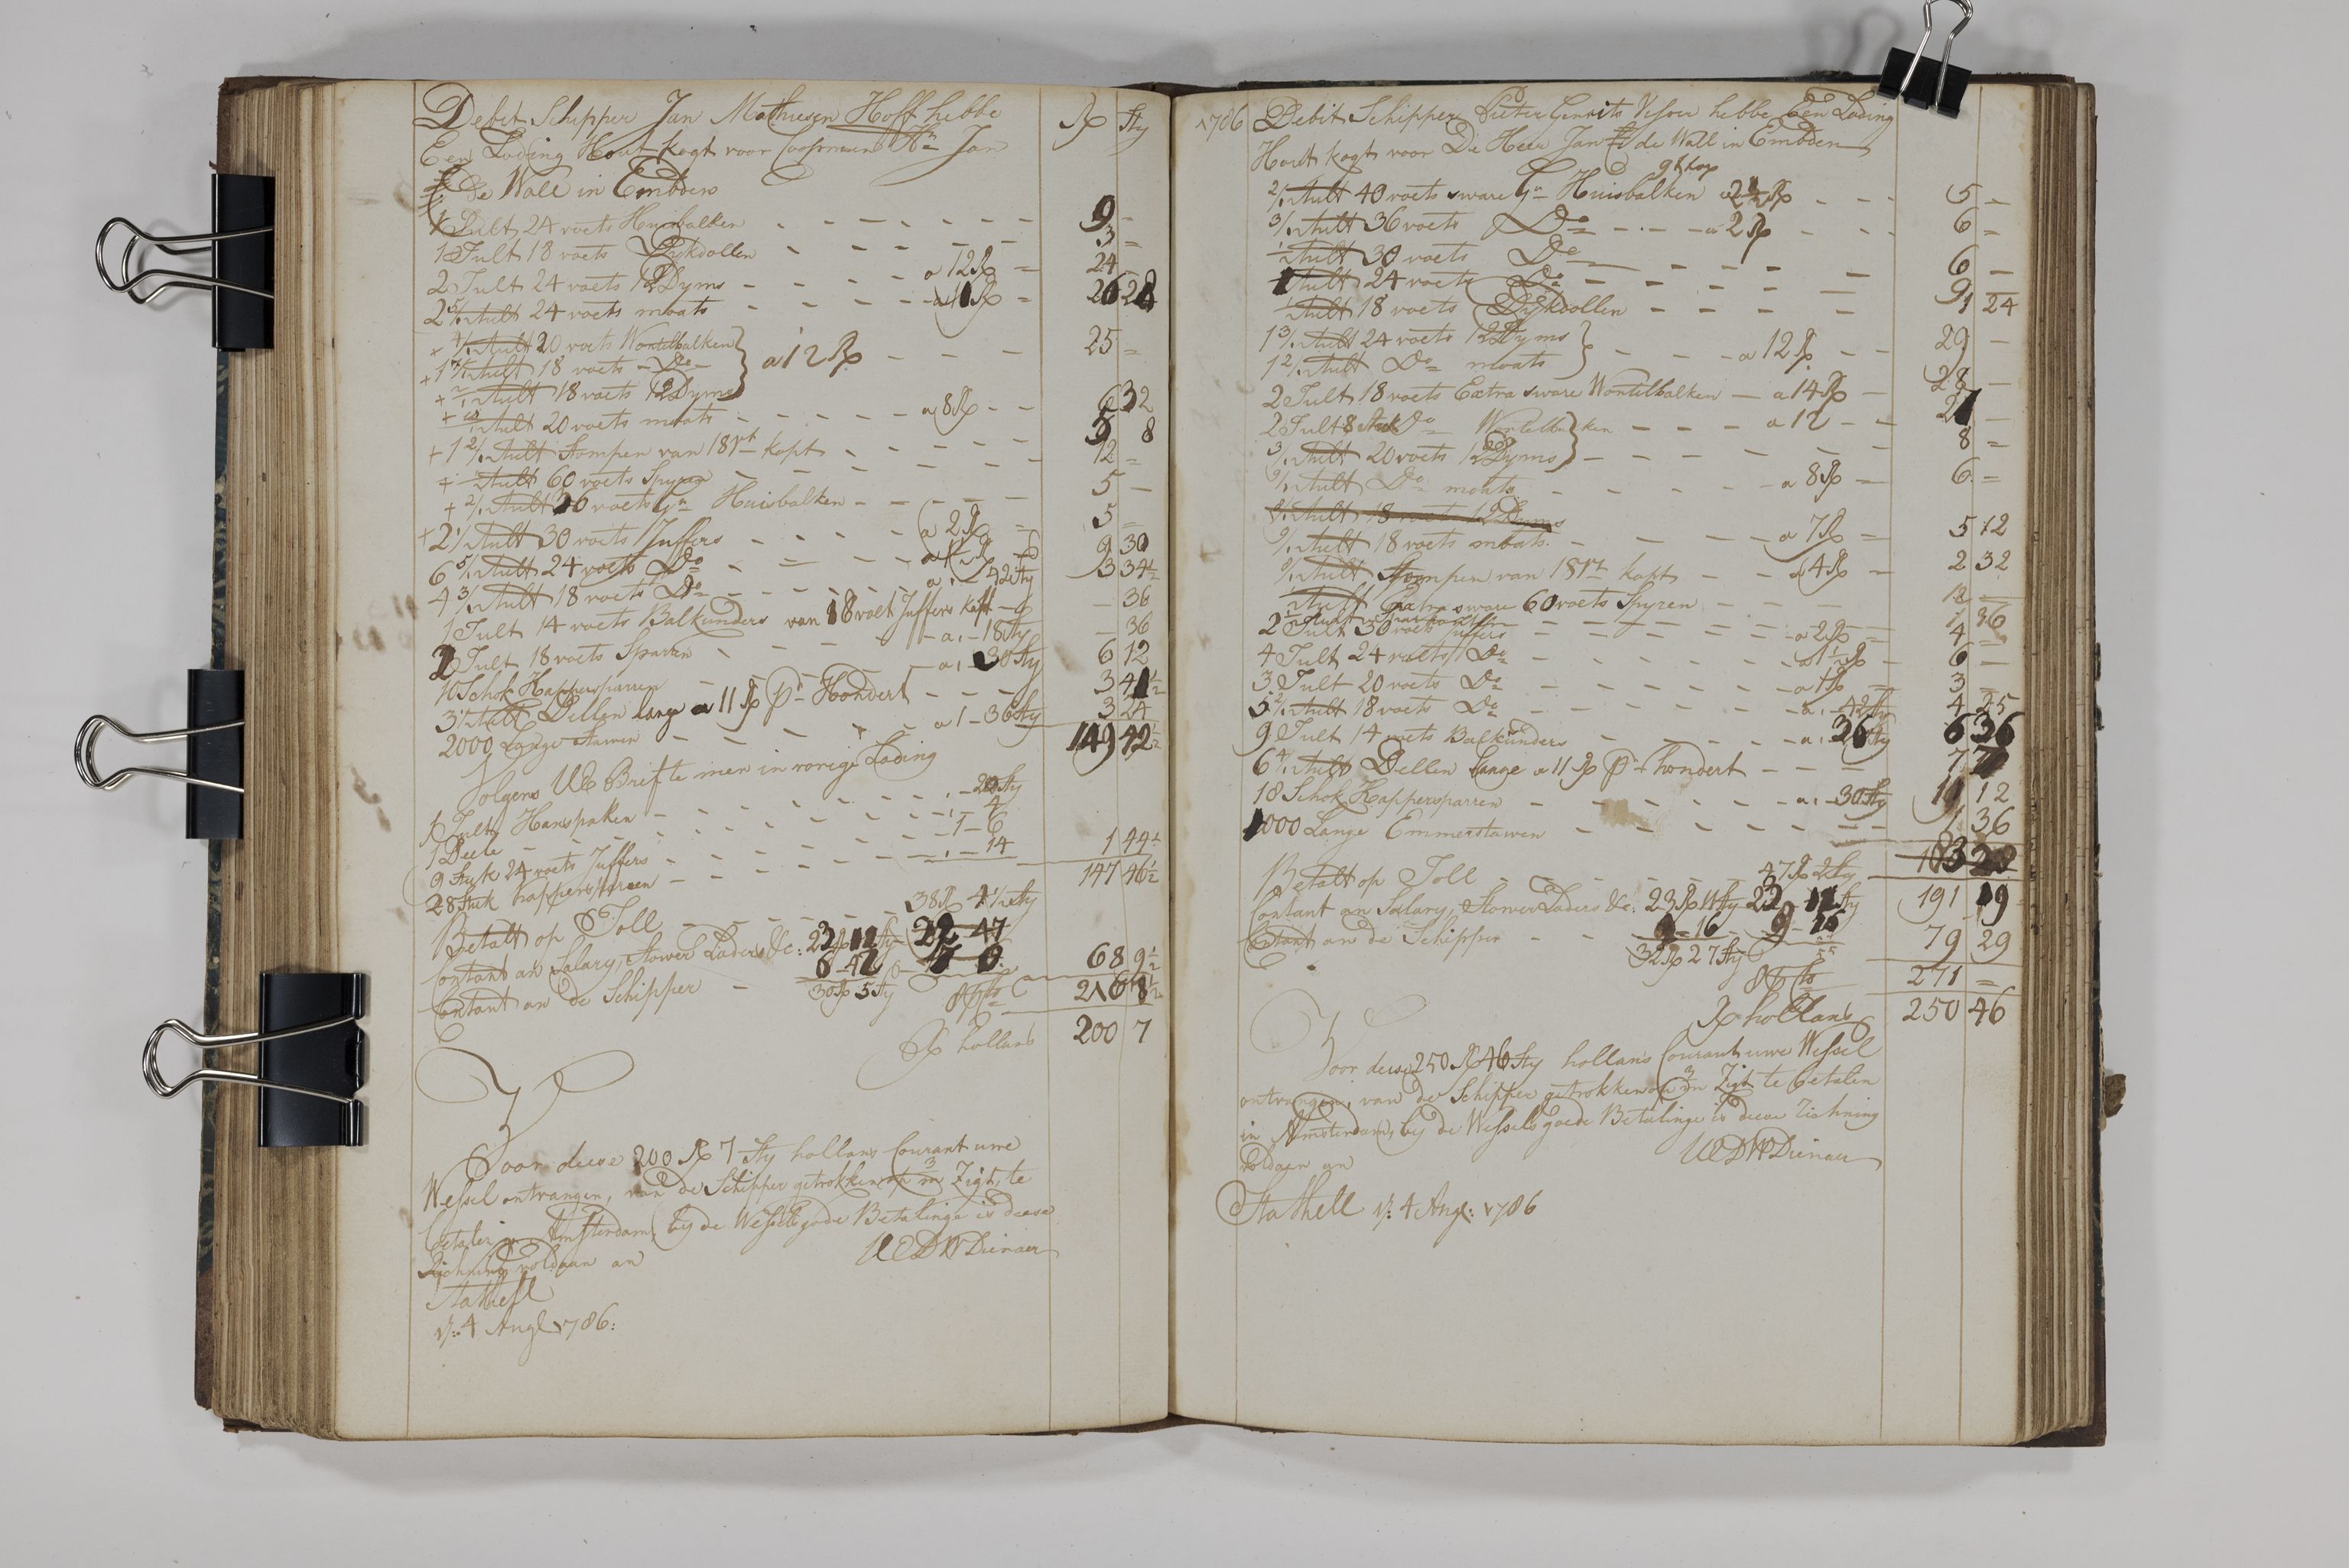 Debit Schipper Jan Mathiesen Hoff hebbe R Sty
Een Lading Hout kogt voor Coopman Hr Jan
de Wall in Embden
1 Tult 24 voets Huisbalken - - - 9 -
1 Tult 18 voets Dykdollen - - - 3 =
2 Tult 24 voets 12 Dyms - - - a 12 R = 24
2 5/ Tult 24 voets moats - - - a 11 R = 26 28
+ Tult 20 voets Wontelbalken
+ 1 Tult 18 voets Do } a 12 R - - - 25 =
+ Tult 18 voets 12 Dyms
+ Tult 20 voets moats - - - a 8 R - - 6 32
+ 1 2/ Tult Stompen van 18 vt kapt - - - 5 8
+ Tult 60 voets Spyren - - - 12 =
+ 2/ Tult 36 voets Gr Huisbalken - - - 5 -
+ 2 1/ Tult 30 voets Juffers - - - a 2 R = 5 =
6 5/ Tult 24 voets Do - - - 9 30
4 3/ Tult 18 voets Do - - - a , 42 Sty 3 34 1/2
1 Tult 14 voets Balkunders van 18 voet Juffers kapt - 36
2 Tult 18 voets Sparren - - - a , - 18 Sty - 36
10 Schok Happersparren - - - a , - 30 Sty 6 12
3 Tult Dellen lange a 11 R pr Hondert - - - 3 41 1/2
2000 Lange stawen - - - a 1 - 36 Sty 3 24
149 42 1/2
Volgens UE Brief te men in vorige Lading
1 Tult Hanspaken - - - , - 20 Sty
1 Deele - - - , - 4
9 Styk 24 voets Juffers - - - 1 - 6
28 Stuk happersparren - - - , - 14 1 44 1/2
147 46 1/2
Betalt op Toll - - - 38 R 4 1/2 Sty
Contant an Salary, Stower Laders &c: 23 R 11 Sty 22 47
Contant an de Schipper - 6 - 42 68 9 1/2
30 R 5 Sty 216 8 1/2
R hollans 200 7
Voor diese 200 R 7 Sty hollans Courant uwe
Wessel ontvangen, van de Schipper getrokken op 3/m Zigt, te
betalen in Amsterdam, by de Wessels goede Betalinge is diese
Richning voldaan an UEDWDienaer
Stathell
d: 4 Augt 1786:
1786 Debit Schipper Pieter Gerrits Visser hebbe Een Lading
Hout kogt voor De Heer Jan de Wall in Embden
2/ Tult 40 voets sware Gr Huisbalken a 2 1/2 R - - - 5 -
3/ Tult 36 voets Do - - - a 2 R - - - 6 =
Tult 30 voets Do - - - 6 -
1 Tult 24 voets Do - - - 9 -
Tult 18 voets Dykdollen - - - 1 24
1 3/ Tult 24 voets 12 Dyms
1 2/ Tult Do moats } - - - a 12 R - - 29 -
2 Tult 18 voets Extra sware Wontelbalken - a 14 R - 28 -
2 Tult 8 Stuk Do Wontelbalken - - - a 12 - - 27 -
3/ Tult 20 voets 12 Dyms - - - 8 =
9/ Tult Do moats - - - a 8 R = 6 =
8/ Tult 18 voets 12 Dyms
9/ Tult 18 voets moats - - - a 7 R = 5 12
9/ Tult Stompen van 18 vt kapt - - a 4 R - 2 32
Tult Extra sware 60 voets Spyren - - - 18 -
1 36
2 Tult 30 voets Juffers - - - a 2 R = 4 =
4 Tult 24 voets Do - - - a 1 1/2 R - 6 -
3 Tult 20 voets Do - - - a 1 R - 3 -
5 2/ Tult 18 voets Do - - - a , - 42 Sty 4 45
9 Tult 14 voets Balkunders - - - a , 36 Sty 6 36
6 4/ Tult Dellen lange a 11 R pr hondert - - - 7
18 Schok Happersparren - - - a , - 30 Sty 11 12
1000 Lange Emmerstawen - - - 1 36
183
Betalt op Toll - - - 47 R 2 Sty 191 19
Contant an Salary, Stower Laders &c: 23 R 11 Sty 23 11 Sty
Contant an de Schipper - - 9 - 16 9 - 16 79 29
32 R 27 Sty 271 =
R hollans 250 46
Voor diese 250 R 46 Sty hollans Courant uwe Wessel
ontvangen, van de Schipper getrokken op 3/m Zigt te betalen
in Amsterdam, by de Wessels goede Betalinge is diese Richning
voldaan an UEDWDienaer
Stathell d: 4 Aug: 1786